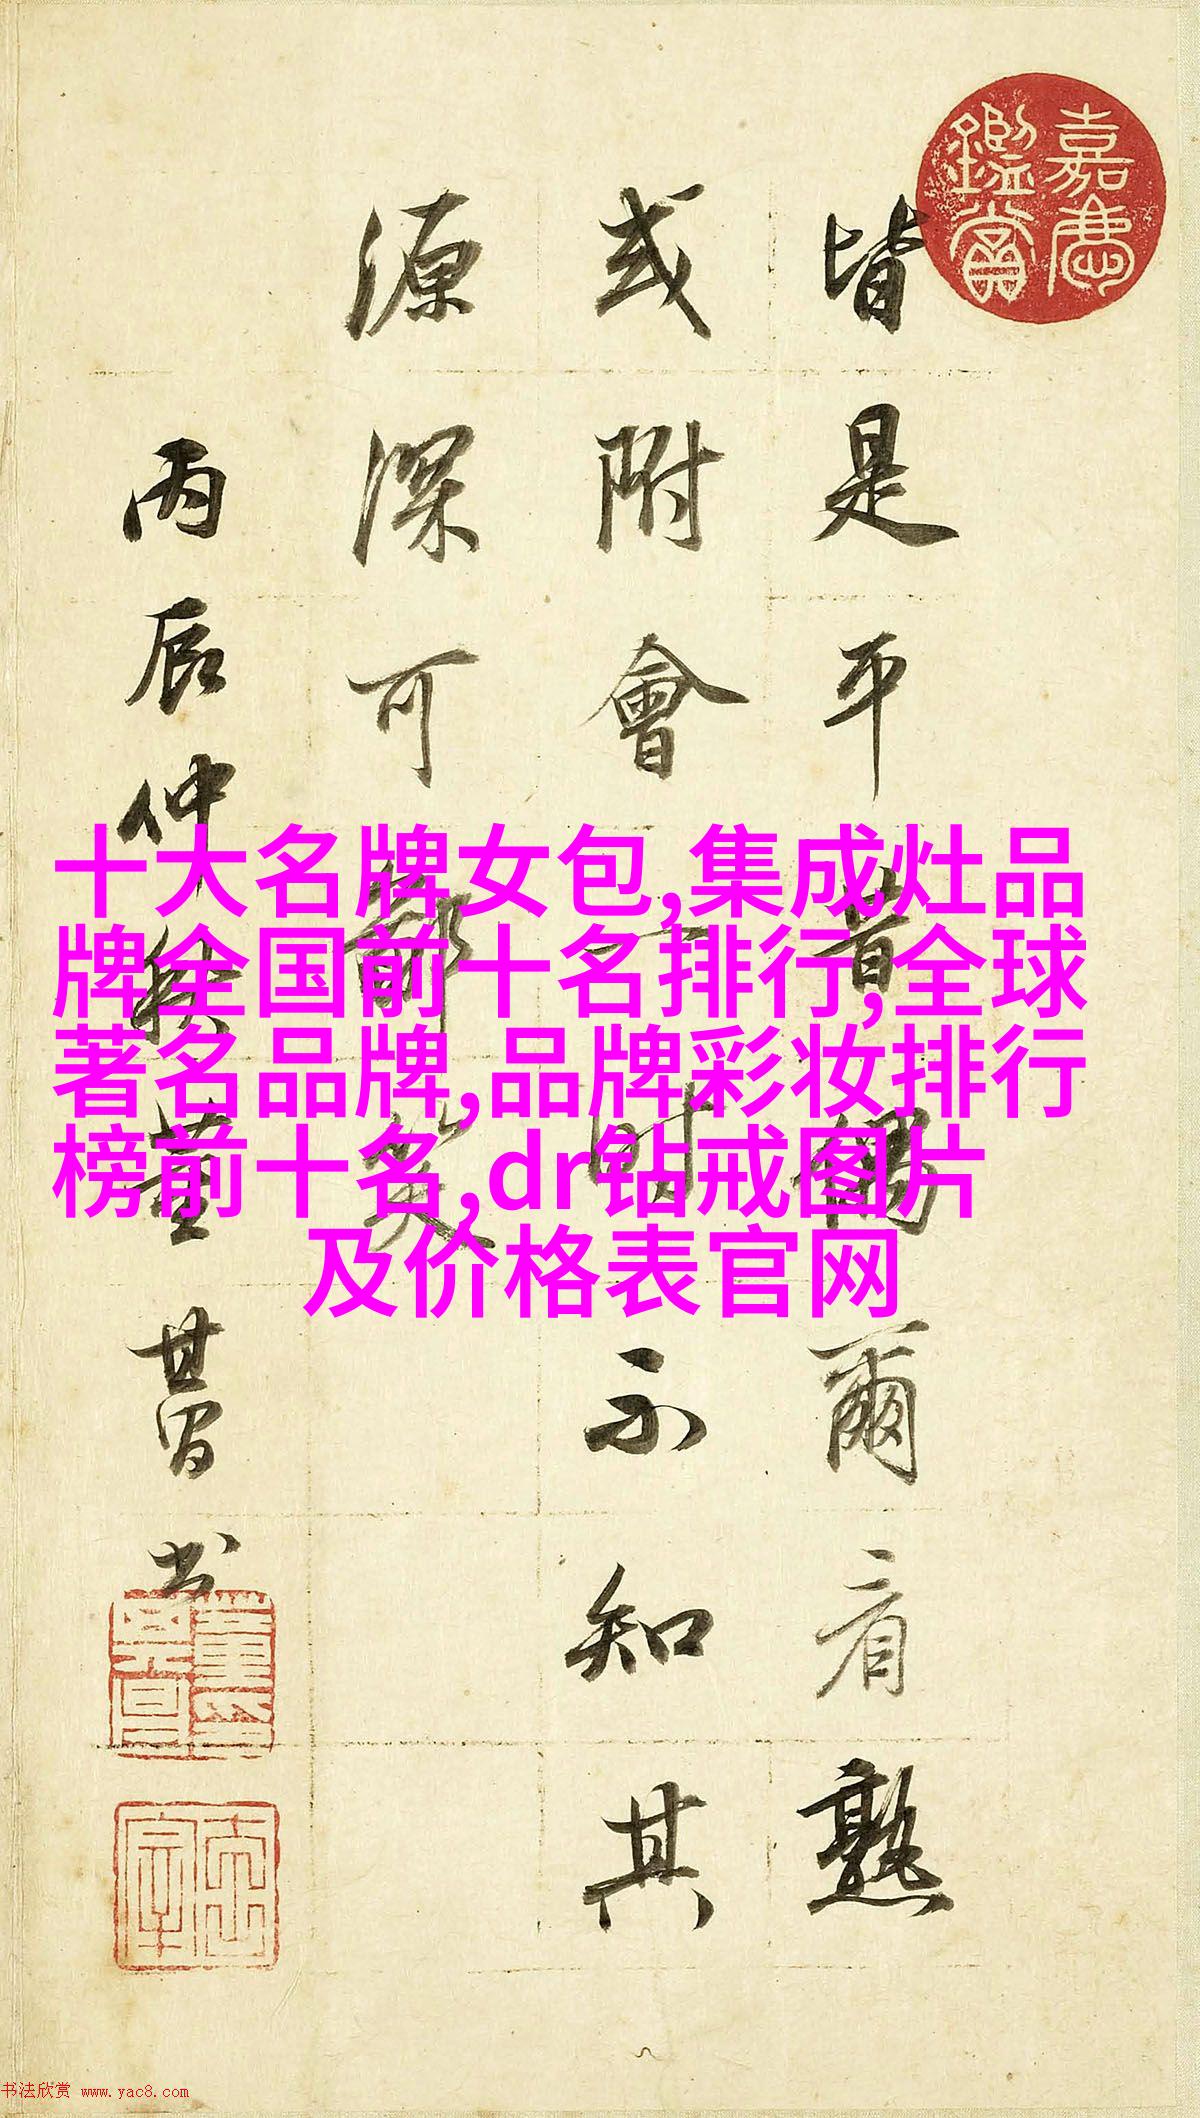 嘉慶
鑑賞
皆是平昔偶爾看熟
或附會一時不知其
源深可鄙笑
丙辰仲秋董其昌书
十大名牌女包,集成灶品
牌全国前十名排行,全球
著名品牌,品牌彩妆排行
榜前十名,dr钻戒图片
及价格表官网
书法欣赏 www.yac8.com